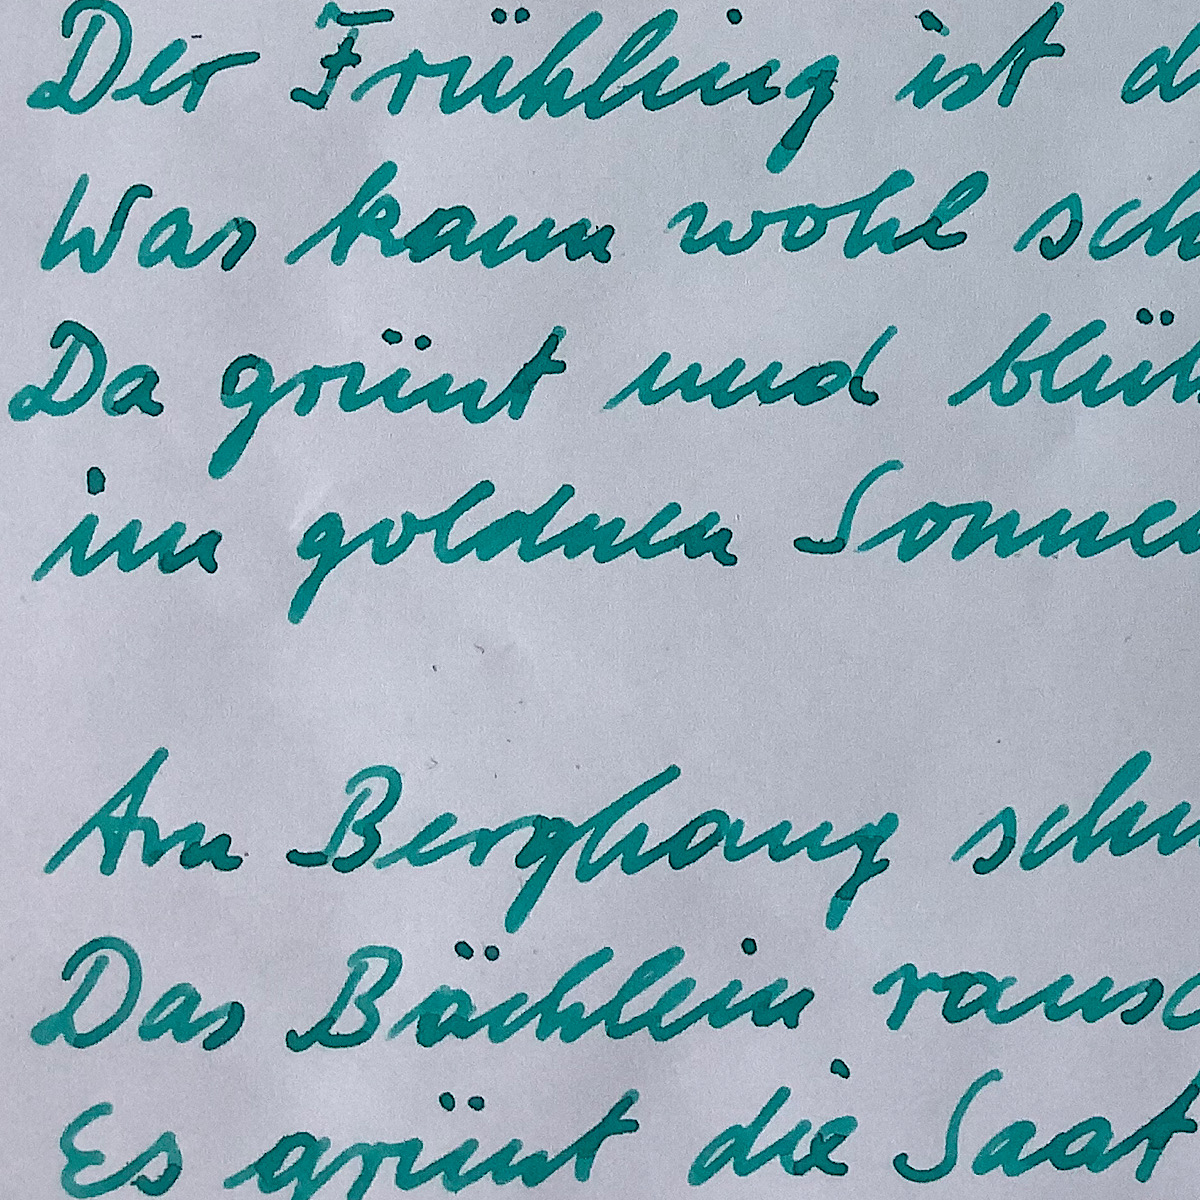 Der Frühling ist d
Was kann wohl sch
Da grünt und blüh
im goldnen Sonne
Am Berghang schm
Das Bächlein rausc
Es grünt die Saat